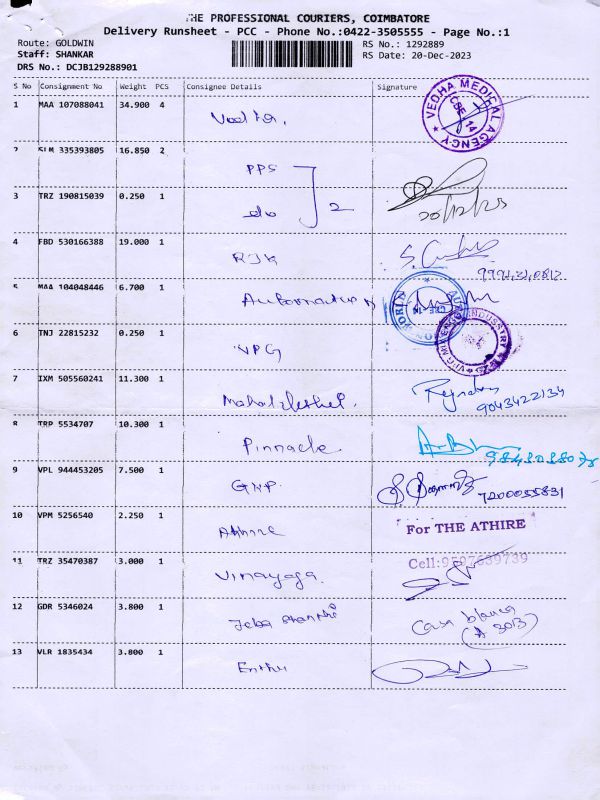 THE PROFESSIONAL COURIERS, COIMBATORE
Delivery Runsheet - PCC - Phone No.:0422-3505555 - Page No.:1
Route: GOLDWIN RS No.: 1292889
Staff: SHANKAR RS Date: 20-Dec-2023
DRS No.: DCJB129288901
S No Consignment No Weight PCS Consignee Details Signature
1 MAA 107088041 34.900 4 VEDHA MEDICAL AGENCY CBE - 14
2 SLM 335393805 16.850 2 PPS
3 TRZ 190815039 0.250 1 do 2 20/12/23
4 FBD 530166388 19.000 1 RJK
5 MAA 104048446 6.700 1
6 TNJ 22815232 0.250 1 VPG
7 IXM 505560241 11.300 1 9043422134
8 TRP 5534707 10.300 1 Pinnacle
9 VPL 944453205 7.500 1 GNP. 7200055831
10 VPM 5256540 2.250 1 Athire For THE ATHIRE
Cell:9597639739
11 TRZ 35470387 3.000 1 Vinayaga.
12 GDR 5346024 3.800 1 Casa blanca
13 VLR 1835434 3.800 1 Enthu